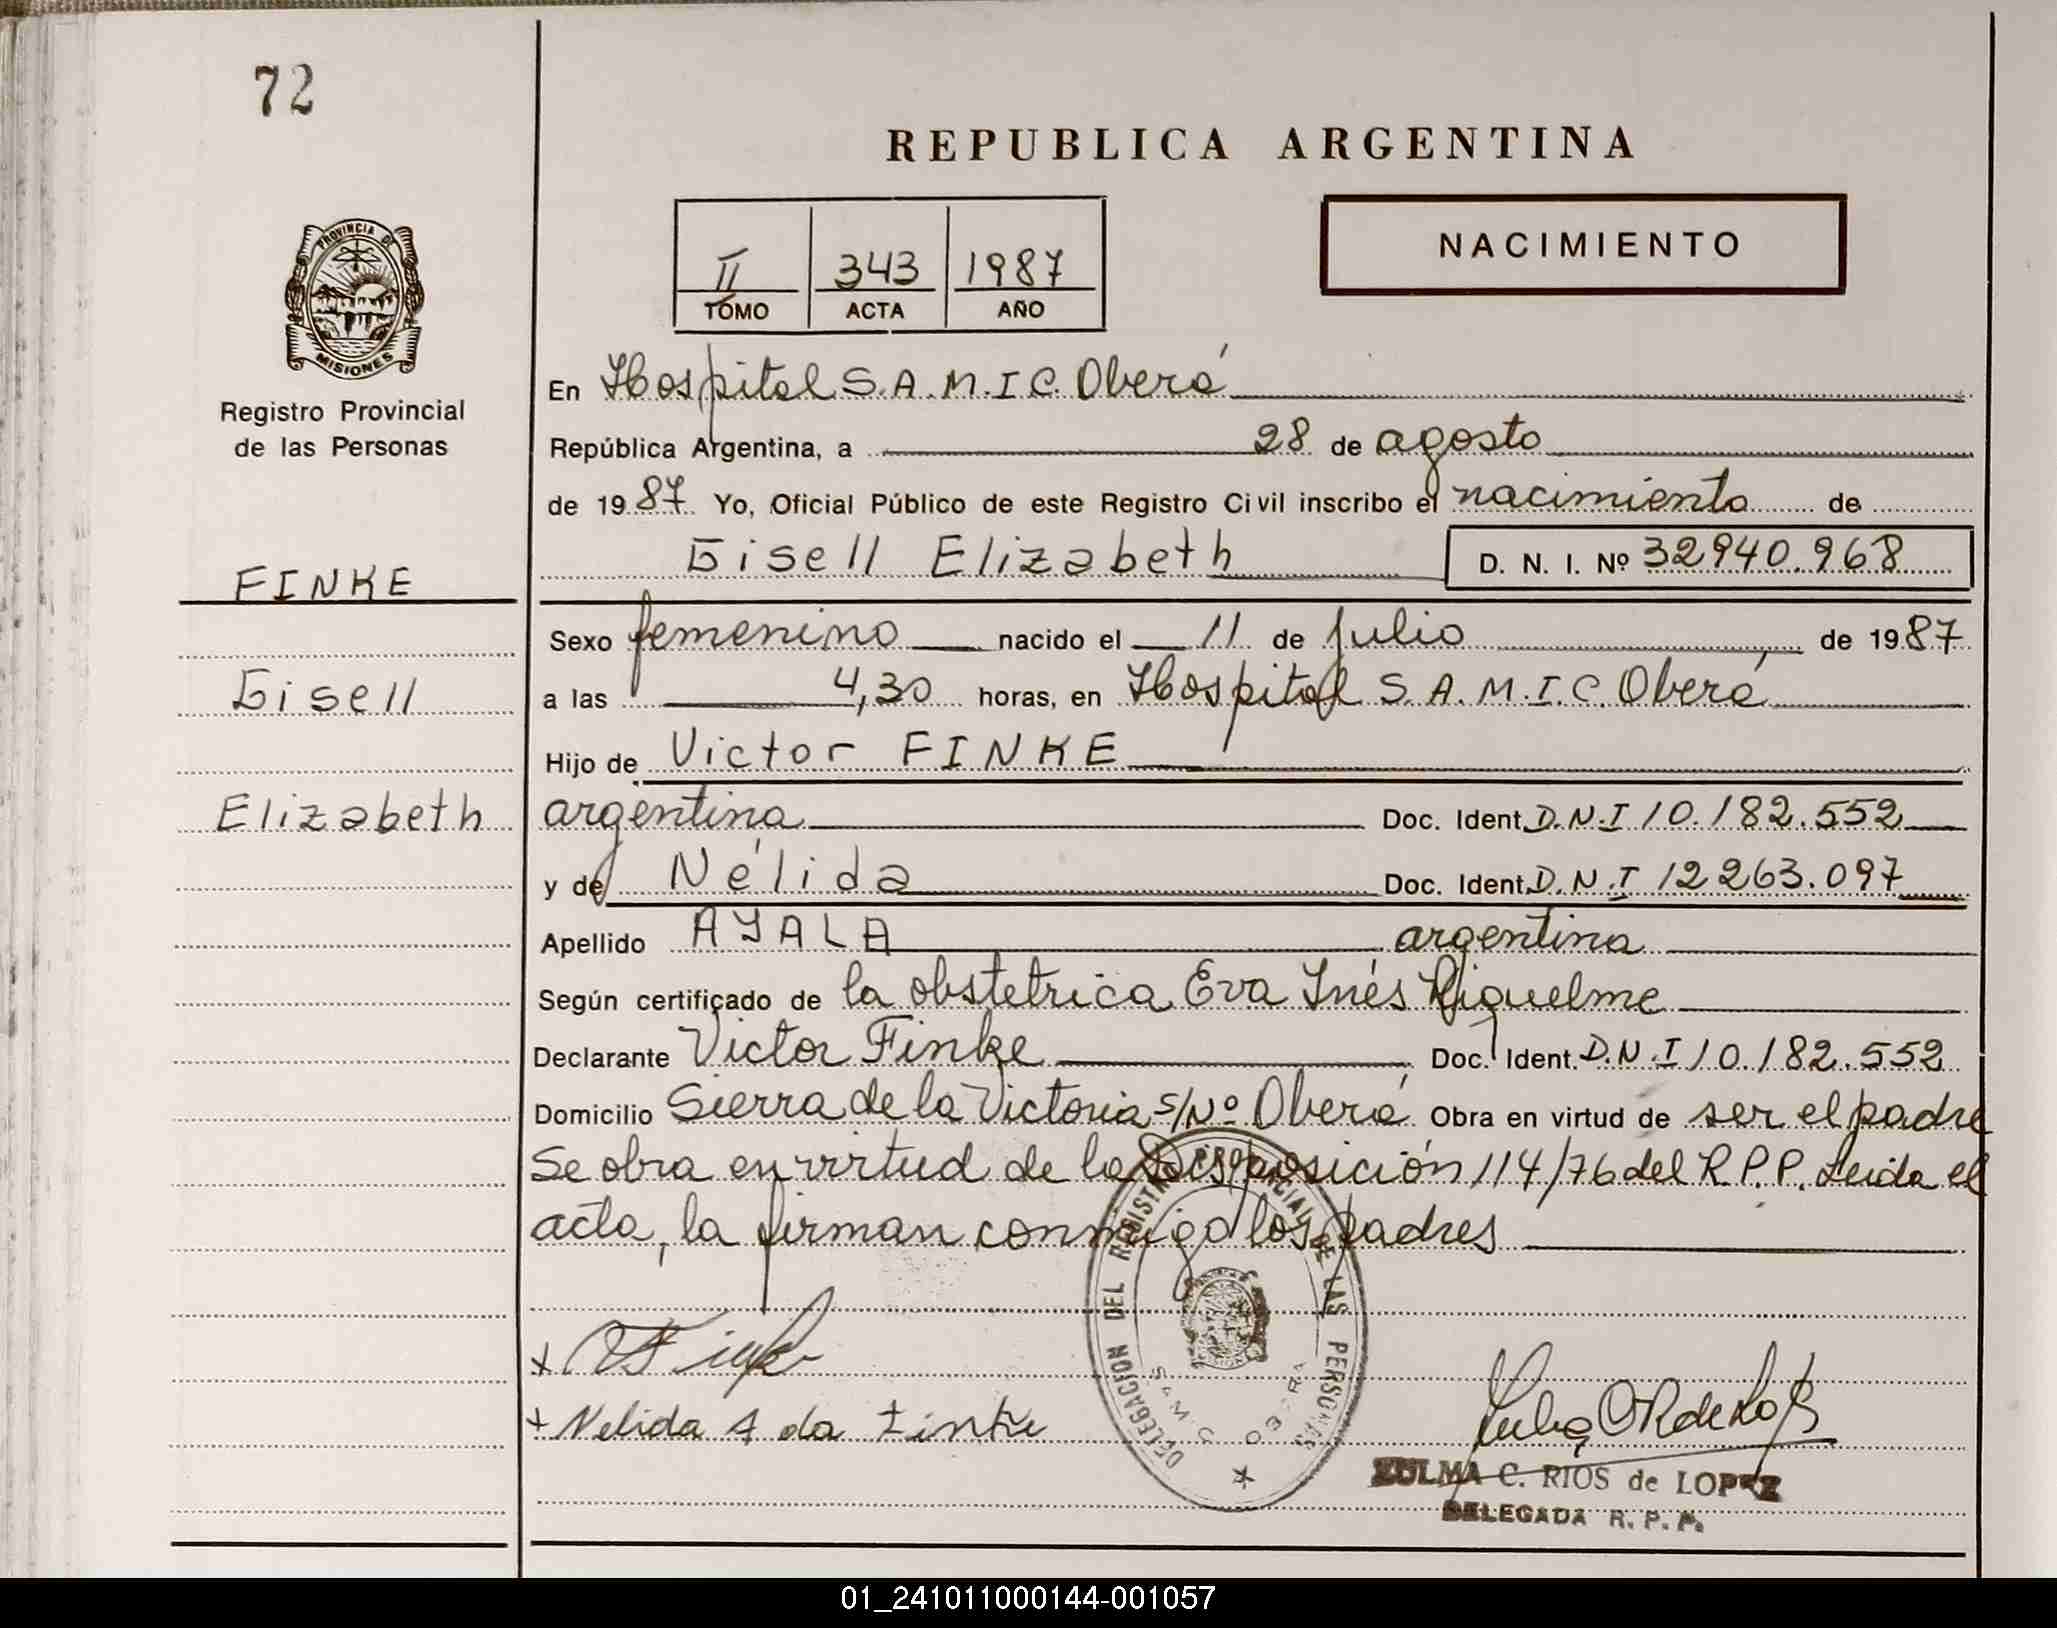 72
REPUBLICA ARGENTINA
NACIMIENTO
II 343 1987
TOMO ACTA AÑO
PROVINCIA DE
MISIONES
Registro Provincial
de las Personas
FINKE
Gisell
Elizabeth
En Hospital S.A.M.I.C. Oberá
República Argentina, a 28 de agosto
de 1987 Yo, Oficial Público de este Registro Civil inscribo el nacimiento de
Gisell Elizabeth D. N. I. Nº 32940.968
Sexo femenino nacido el 11 de julio de 1987
a las 4,30 horas, en Hospital S.A.M.I.C. Oberá
Hijo de Victor FINKE
argentina Doc. Ident. D.N.I 10.182.552
y de Nélida Doc. Ident. D.N.I 12263.097
Apellido AYALA argentina
Según certificado de la obstetrica Eva Inés Riquelme
Declarante Victor Finke Doc. Ident. D.N.I 10.182.552
Domicilio Sierra de la Victoria s/Nº Oberá Obra en virtud de ser el padre
Se obra en virtud de la Disposición 114/76 del R.P.P. Leida el
acta, la firman conmigo los padres
DELEGACION DEL REGISTRO PROVINCIAL DE LAS PERSONAS
+ Nelida A da Finke
ZULMA C. RIOS de LOPEZ
DELEGADA R. P. P.
01_241011000144-001057